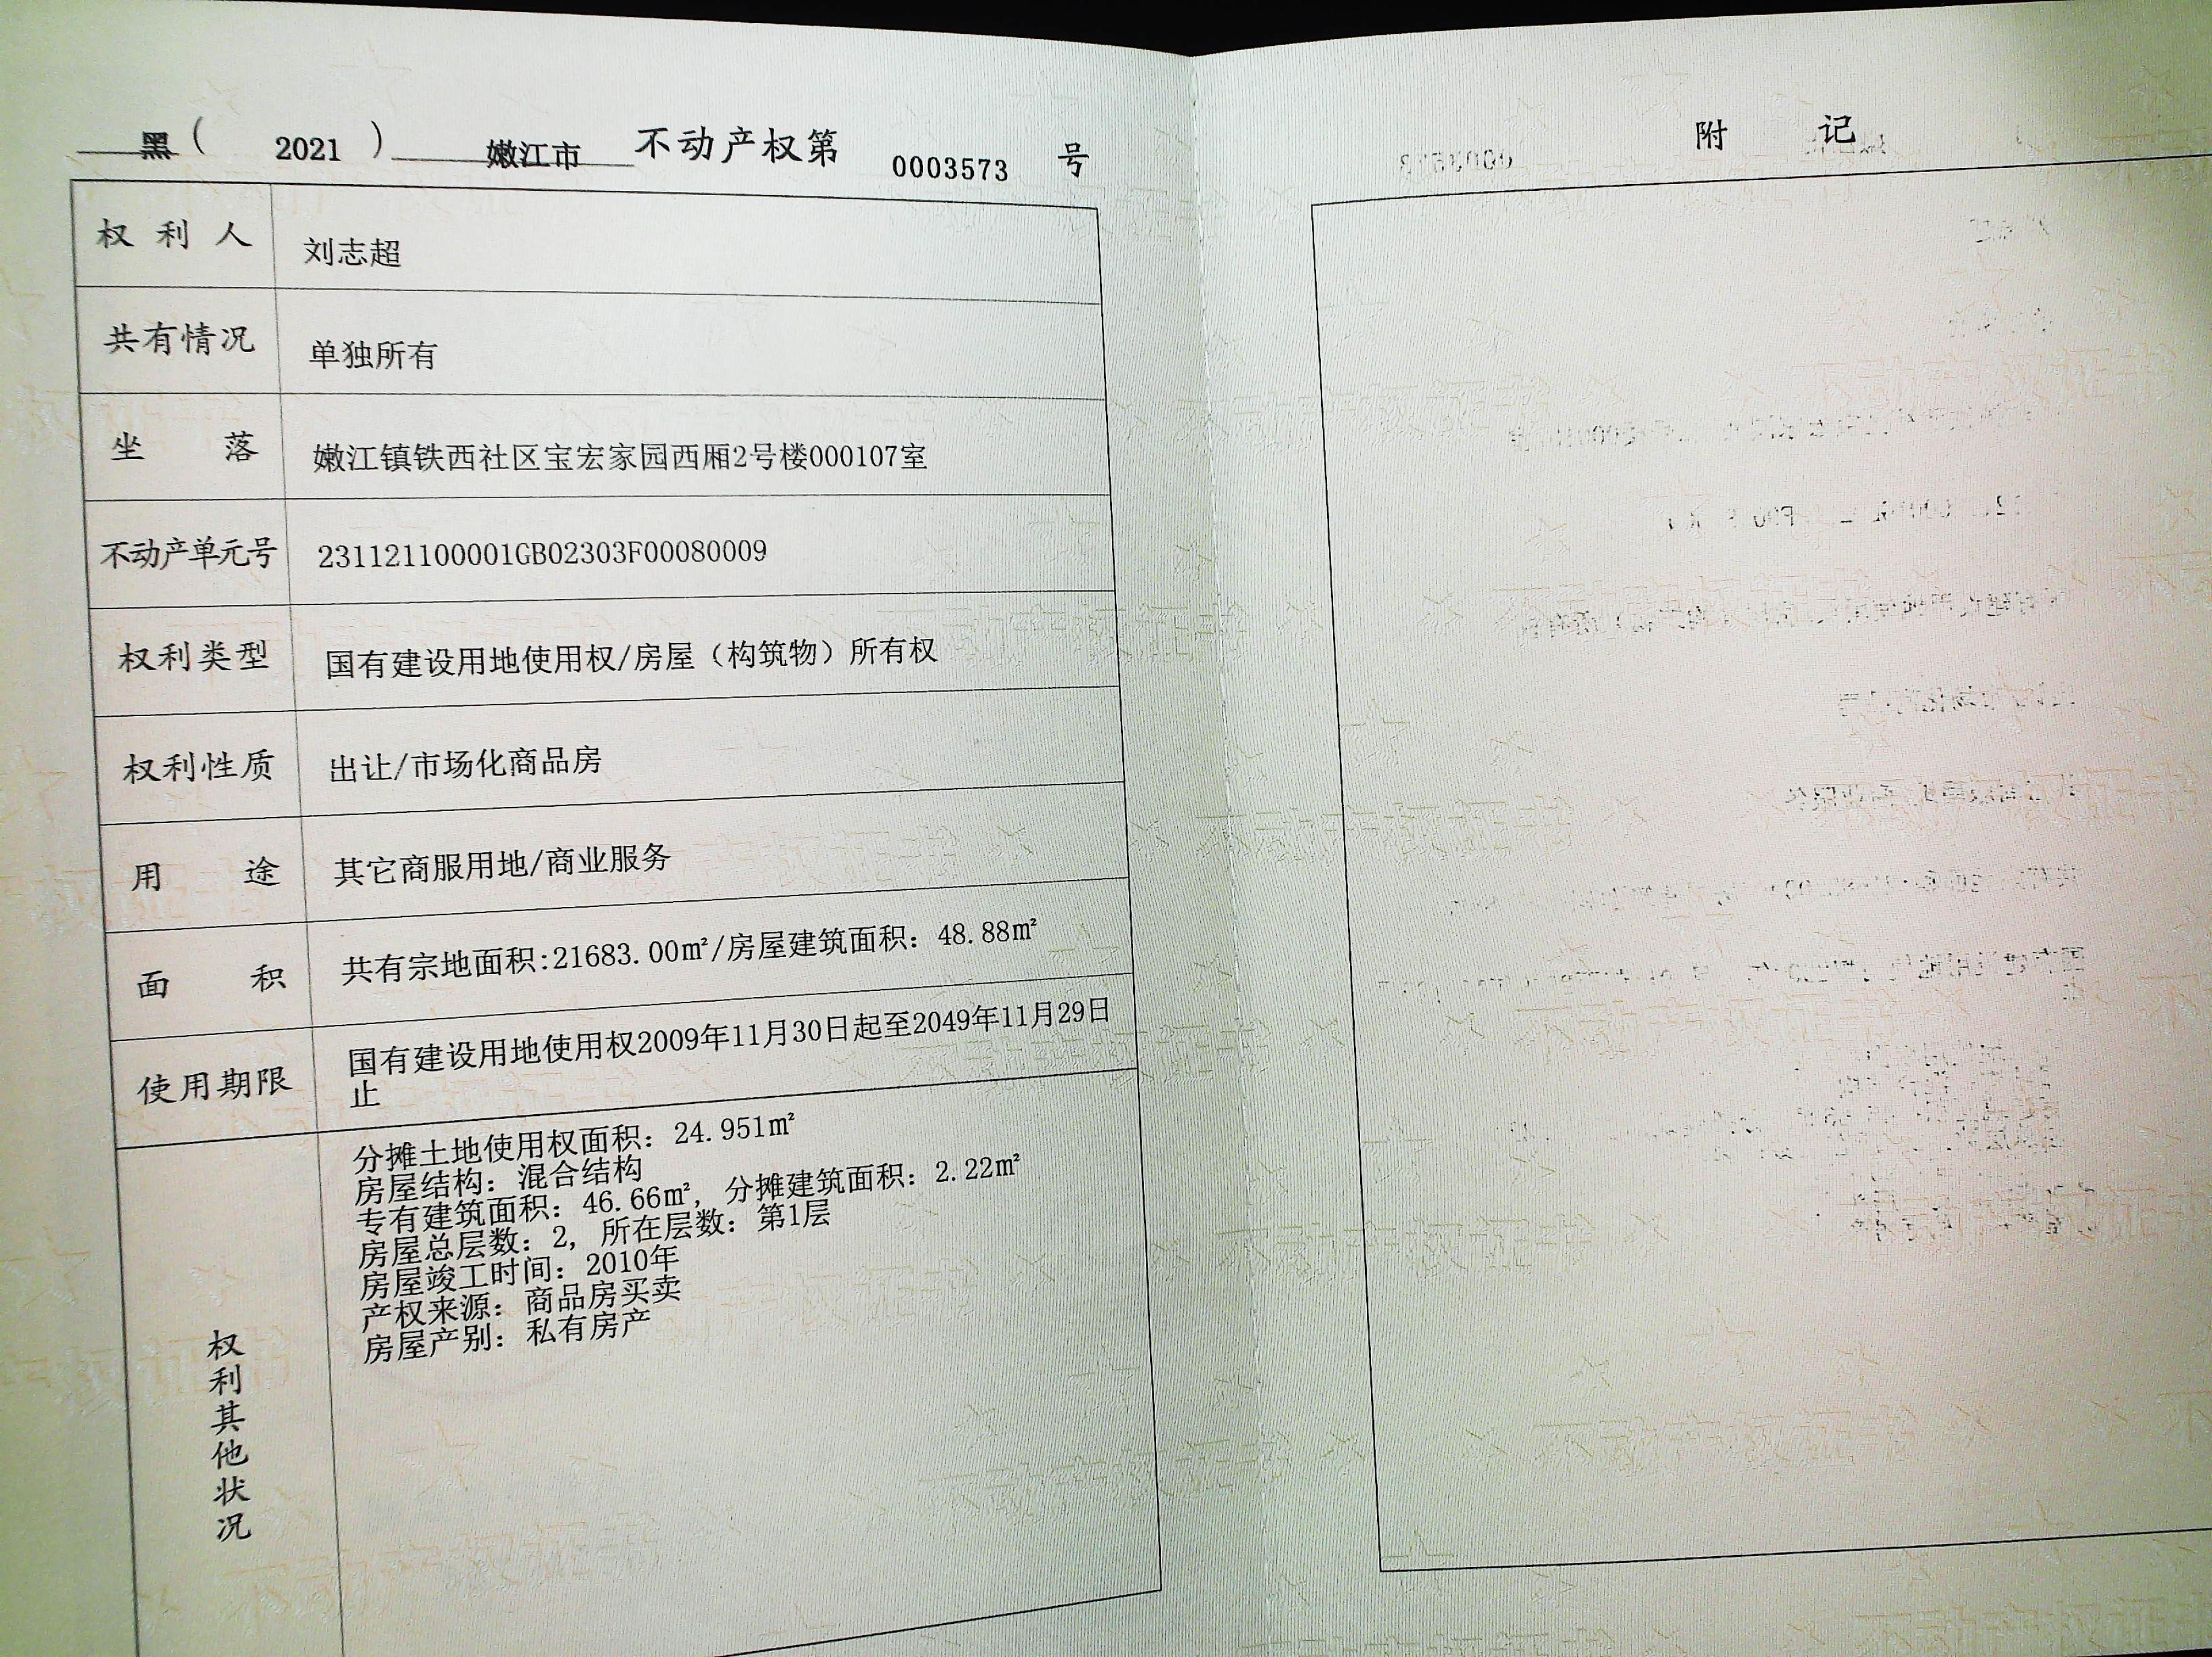 黑（ 2021 ） 嫩江市 不动产权第 0003573 号
权利人 刘志超
共有情况 单独所有
坐落 嫩江镇铁西社区宝宏家园西厢2号楼000107室
不动产单元号 231121100001GB02303F00080009
权利类型 国有建设用地使用权/房屋（构筑物）所有权
权利性质 出让/市场化商品房
用途 其它商服用地/商业服务
面积 共有宗地面积:21683.00㎡/房屋建筑面积：48.88㎡
使用期限 国有建设用地使用权2009年11月30日起至2049年11月29日
止
权利其他状况
分摊土地使用权面积：24.951㎡
房屋结构：混合结构
专有建筑面积：46.66㎡，分摊建筑面积：2.22㎡
房屋总层数：2，所在层数：第1层
房屋竣工时间：2010年
产权来源：商品房买卖
房屋产别：私有房产
附 记